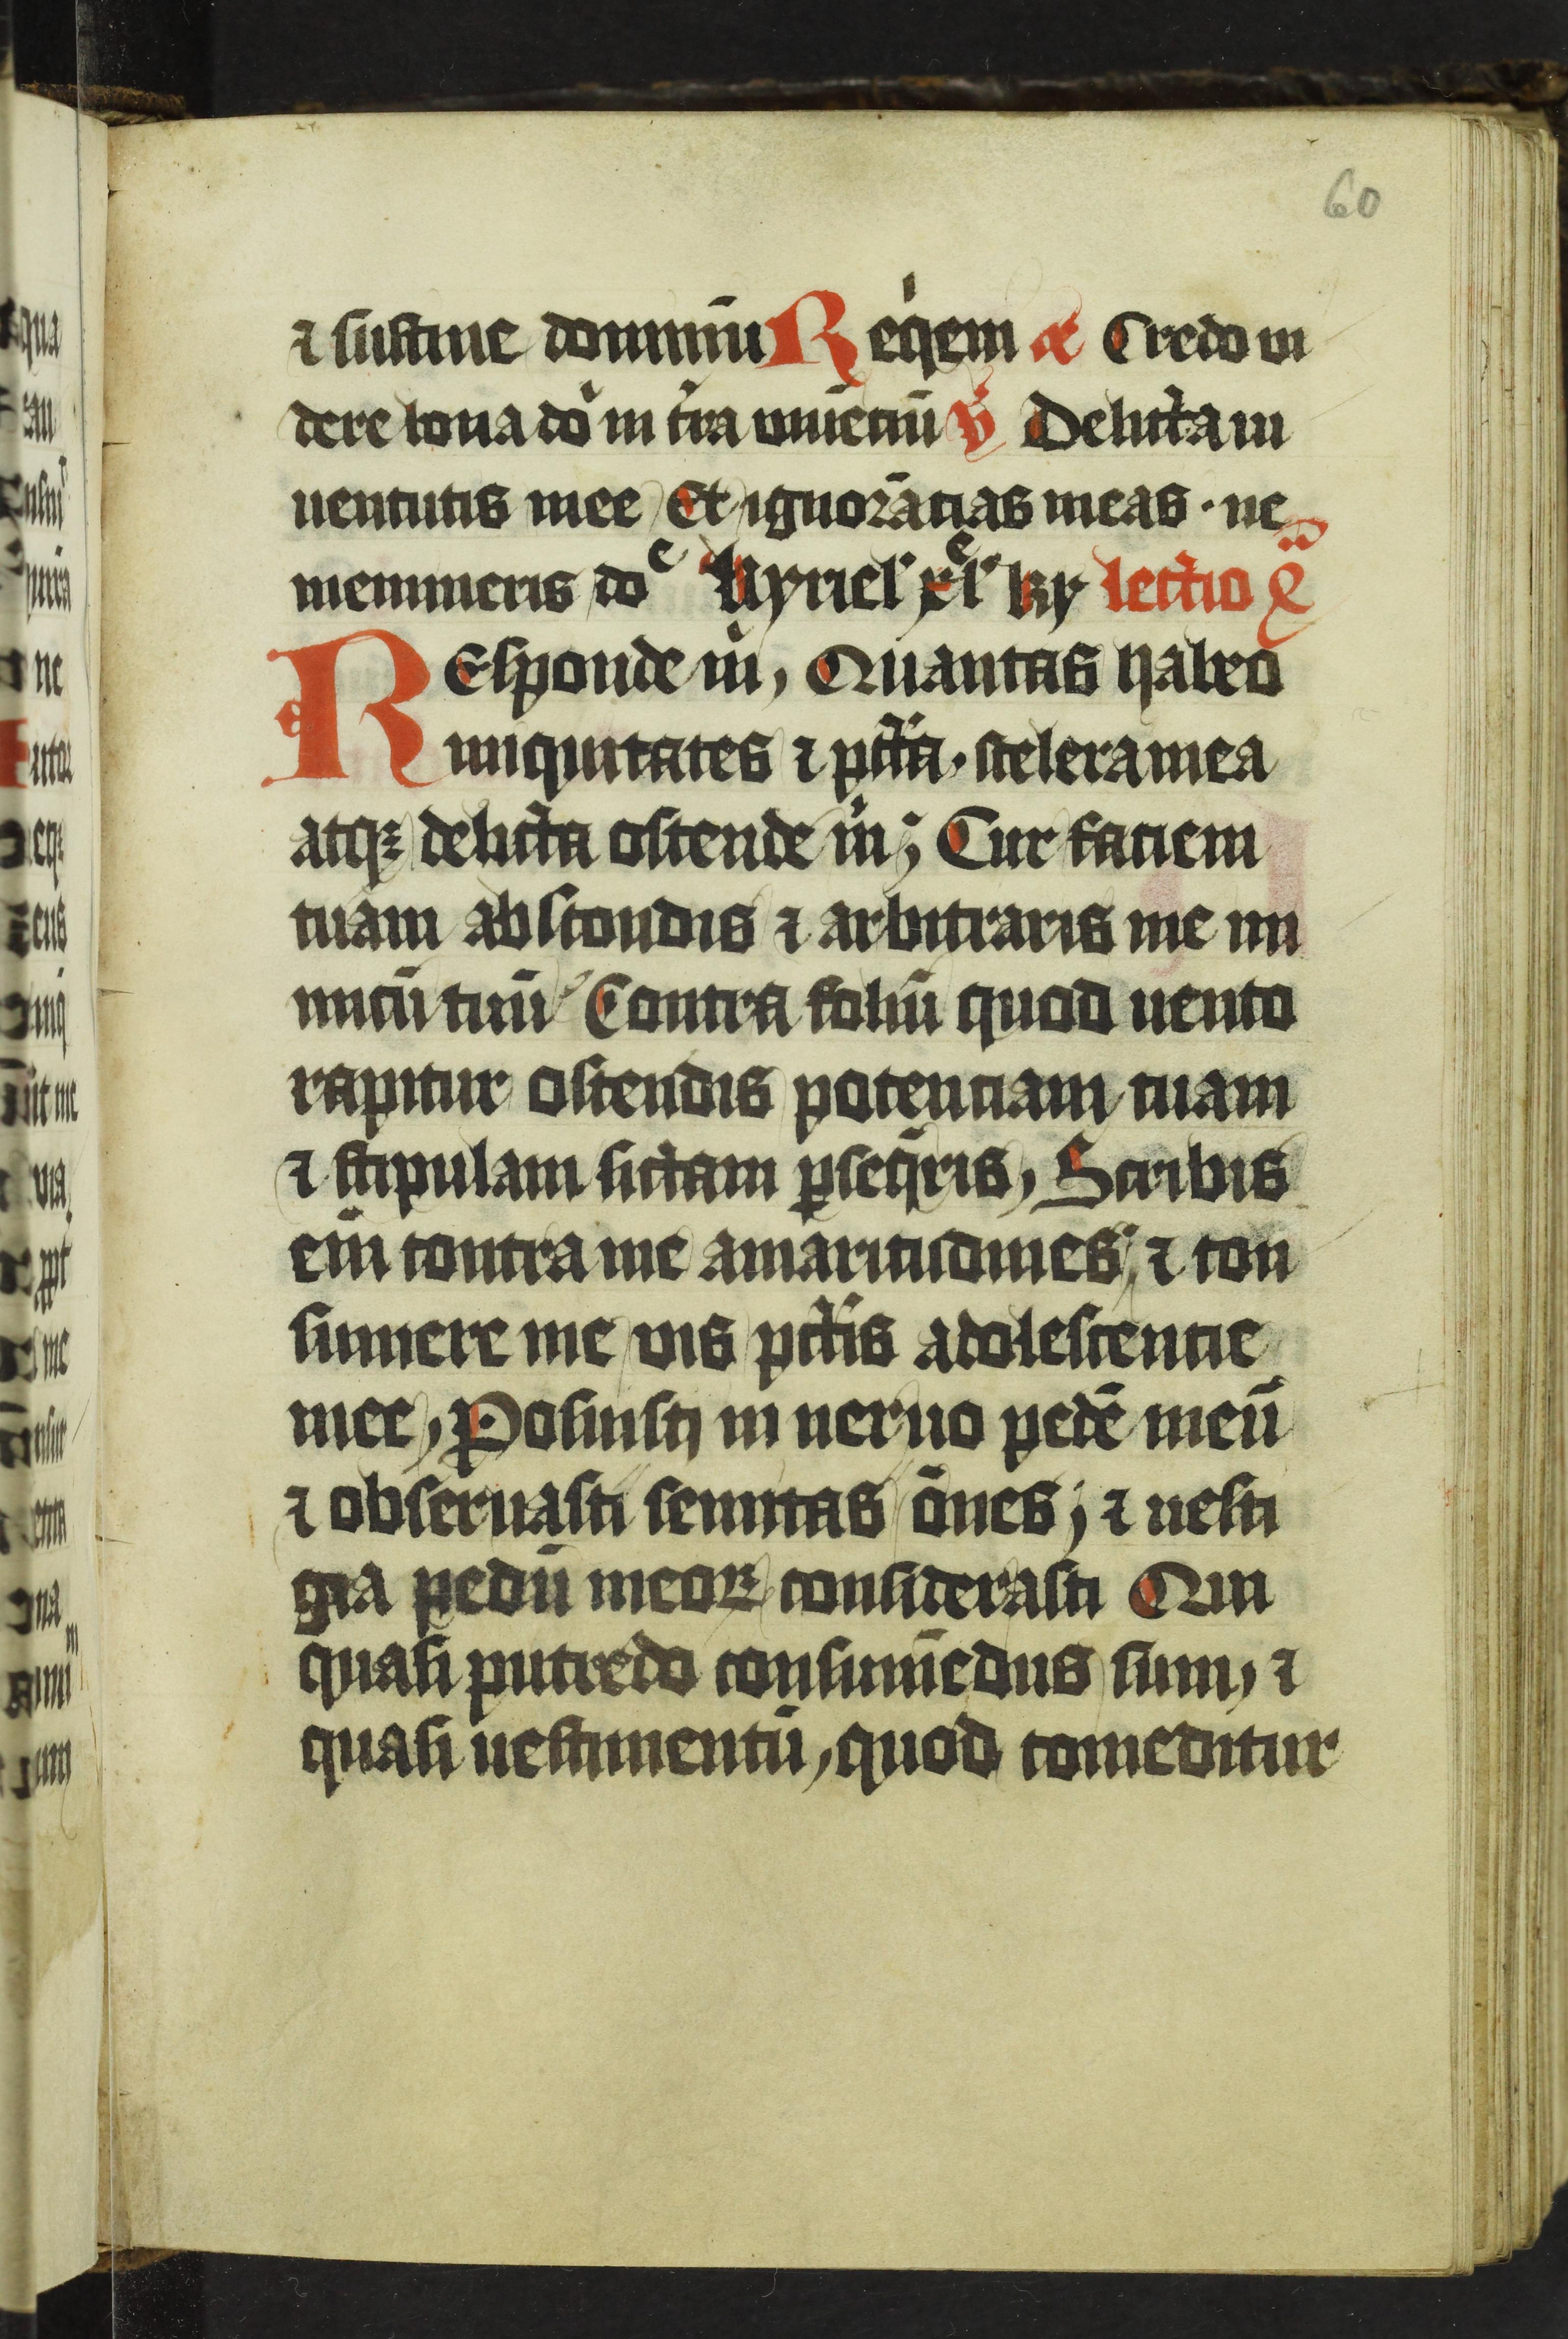 60
⁊ sustine dominū Reqͥem a᷒ Credo vi
dere bona doͥ in tr̄a viuēciū v̄ Delicta iu
uentutis mee Et ignorāncias meas · ne
memineris doᶜ Kyriel' xᵉl' ky lectio
REsponde m̄, Quantas habeo
iniquitates ⁊ pctā. scelera mea
atqꝫ delicta ostende m̄; Cur faciem
tuam abscondis ⁊ arbitraris me ini
micū tuū Contra foliū quod uento
rapitur ostendis potenciam tuam
⁊ stipulam siccam ꝑseq̄ris, Scribis
em̄ contra me amaritudines, ⁊ con
sumere me vis pctīs adolescencie
mee, Posuisti in neruo pedē meū
⁊ obseruasti semitas ōnes; ⁊ uesti
gia pedū meoꝝ considerasti Qui
quasi putredo consumēdus sum, ⁊
quasi uestimentū, quod comeditur